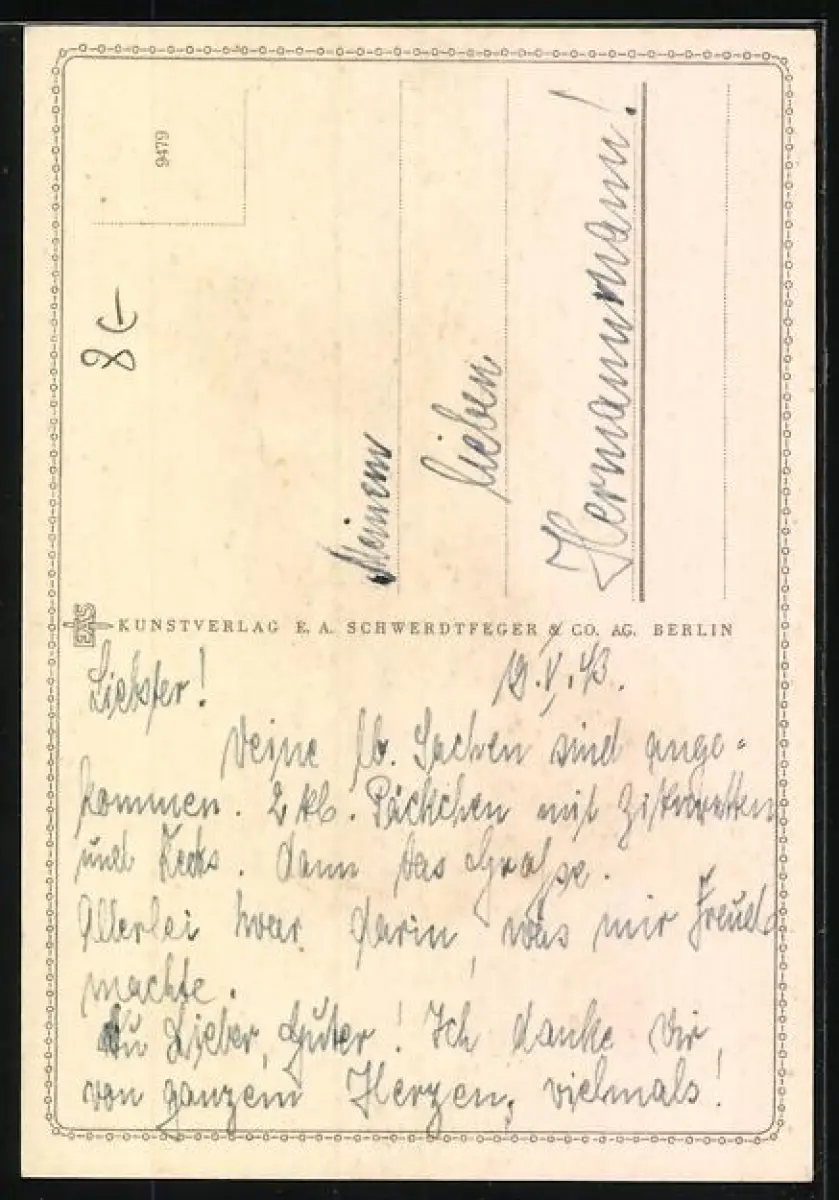 9479
8€
Meinem
lieben
Hermannmann!
EAS
KUNSTVERLAG E. A. SCHWERDTFEGER & CO. AG. BERLIN
Liebster! 19.V.43.
Deine lb. Sachen sind ange-
kommen. 2 kl. Päckchen mit
und Keeks. Dann das Große.
Allerlei war darin, was mir Freude
machte.
Du Lieber, Guter! Ich danke Dir,
von ganzem Herzen, vielmals!